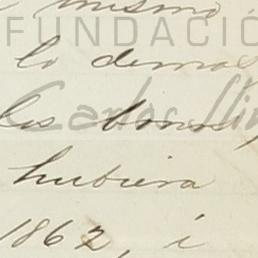 mismo
FUNDACIÓ
lo demas
Carlos Slim
los bonos
hubiera
1862, i